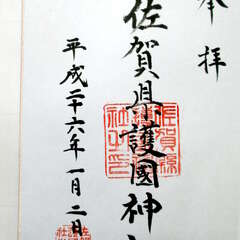 奉拝
佐賀県護國神社
平成二十六年一月二日